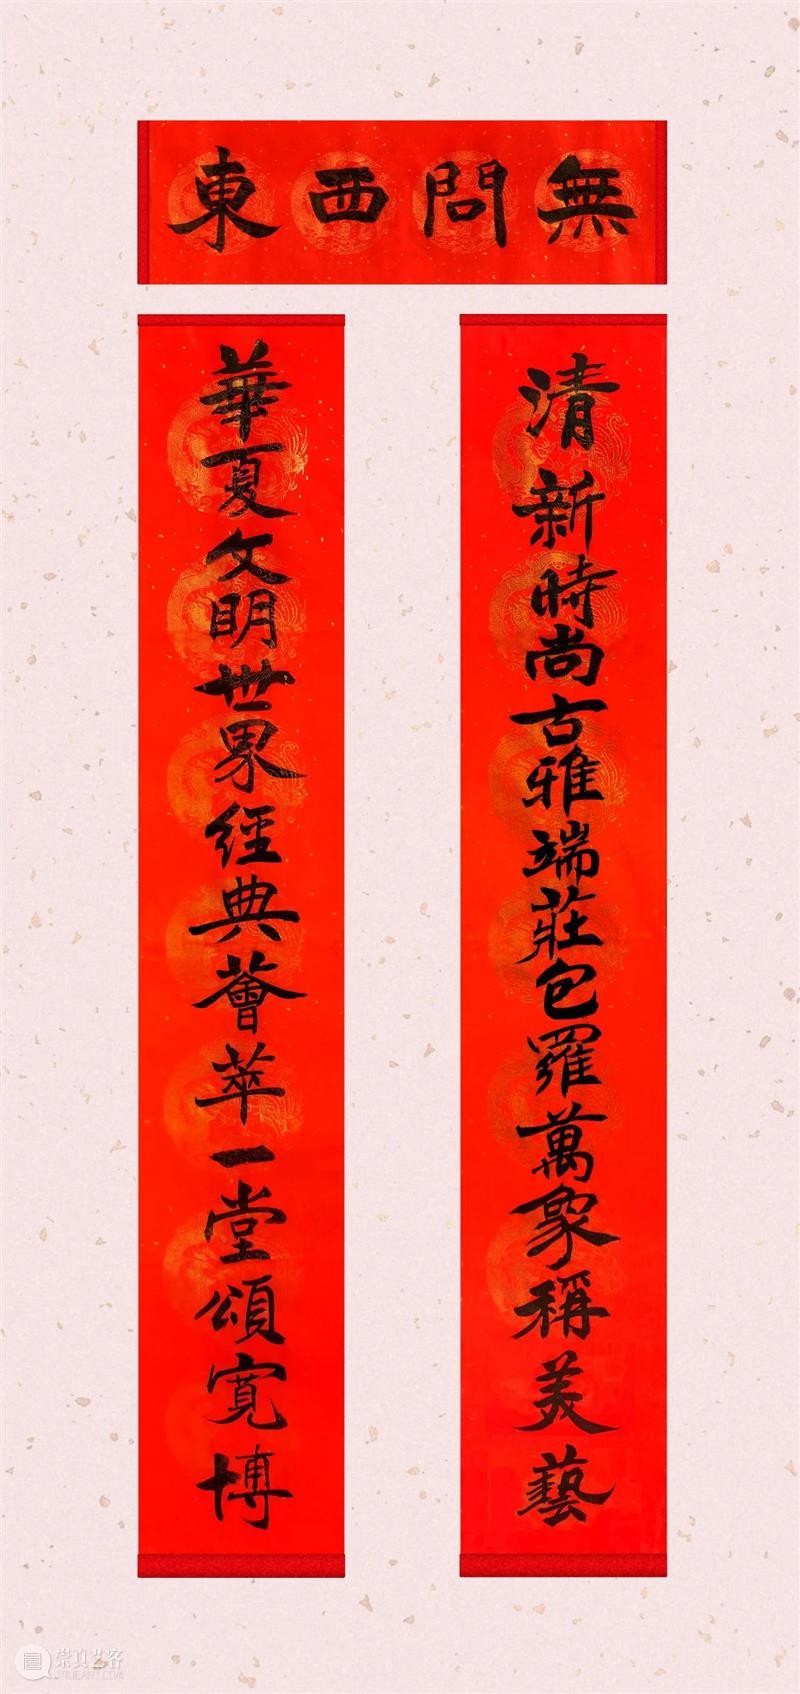 無問西東
清新時尚古雅端莊包羅萬象稱美藝
華夏文明世界經典薈萃一堂頌寬博
崇真艺客
TRUEART.COM